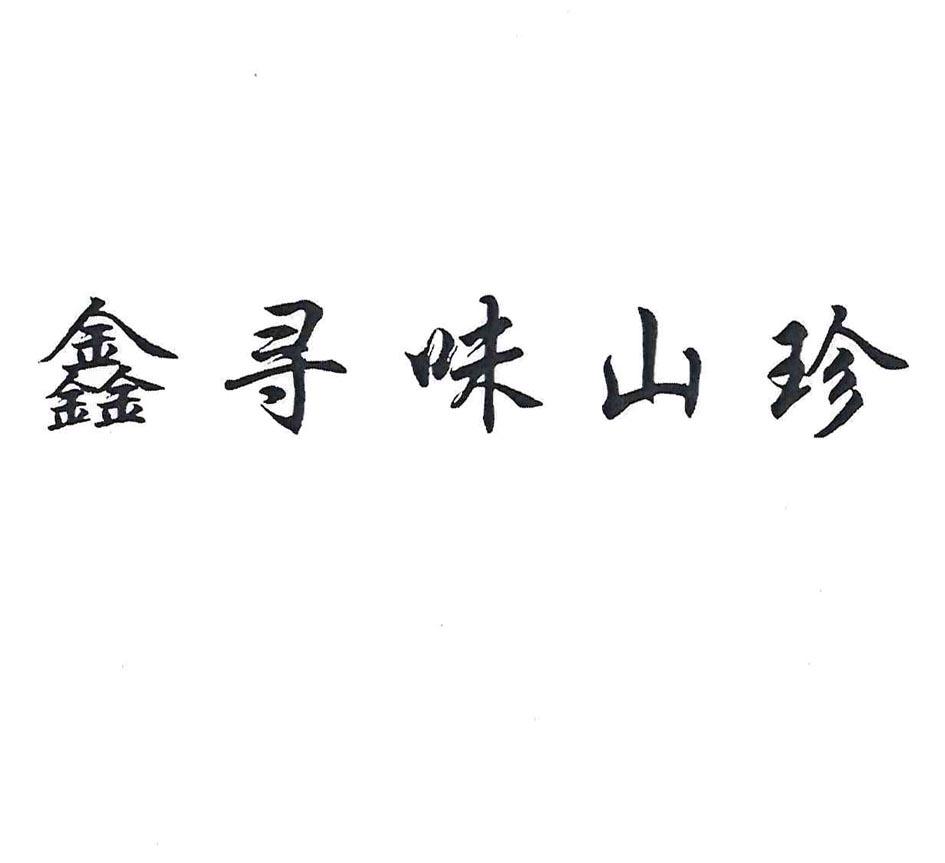 鑫寻味山珍